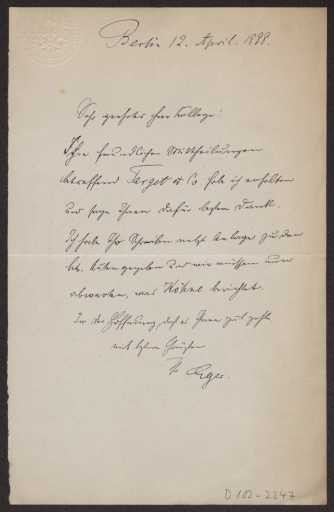 Berlin 12. April. 1898.
Sehr geehrter Herr Kollege!
Ihre freundlichen Mittheilungen
betreffend Target & Co habe ich erhalten
und sage Ihnen dafür besten Dank.
Ich habe Ihr Schreiben nebst Anlage zu den
betr. Akten gegeben und wir müssen nun
abwarten, was Köhne berichtet.
In der Hoffnung, daß es Ihnen gut geht
mit besten Grüßen
Ihr
D 102-2247